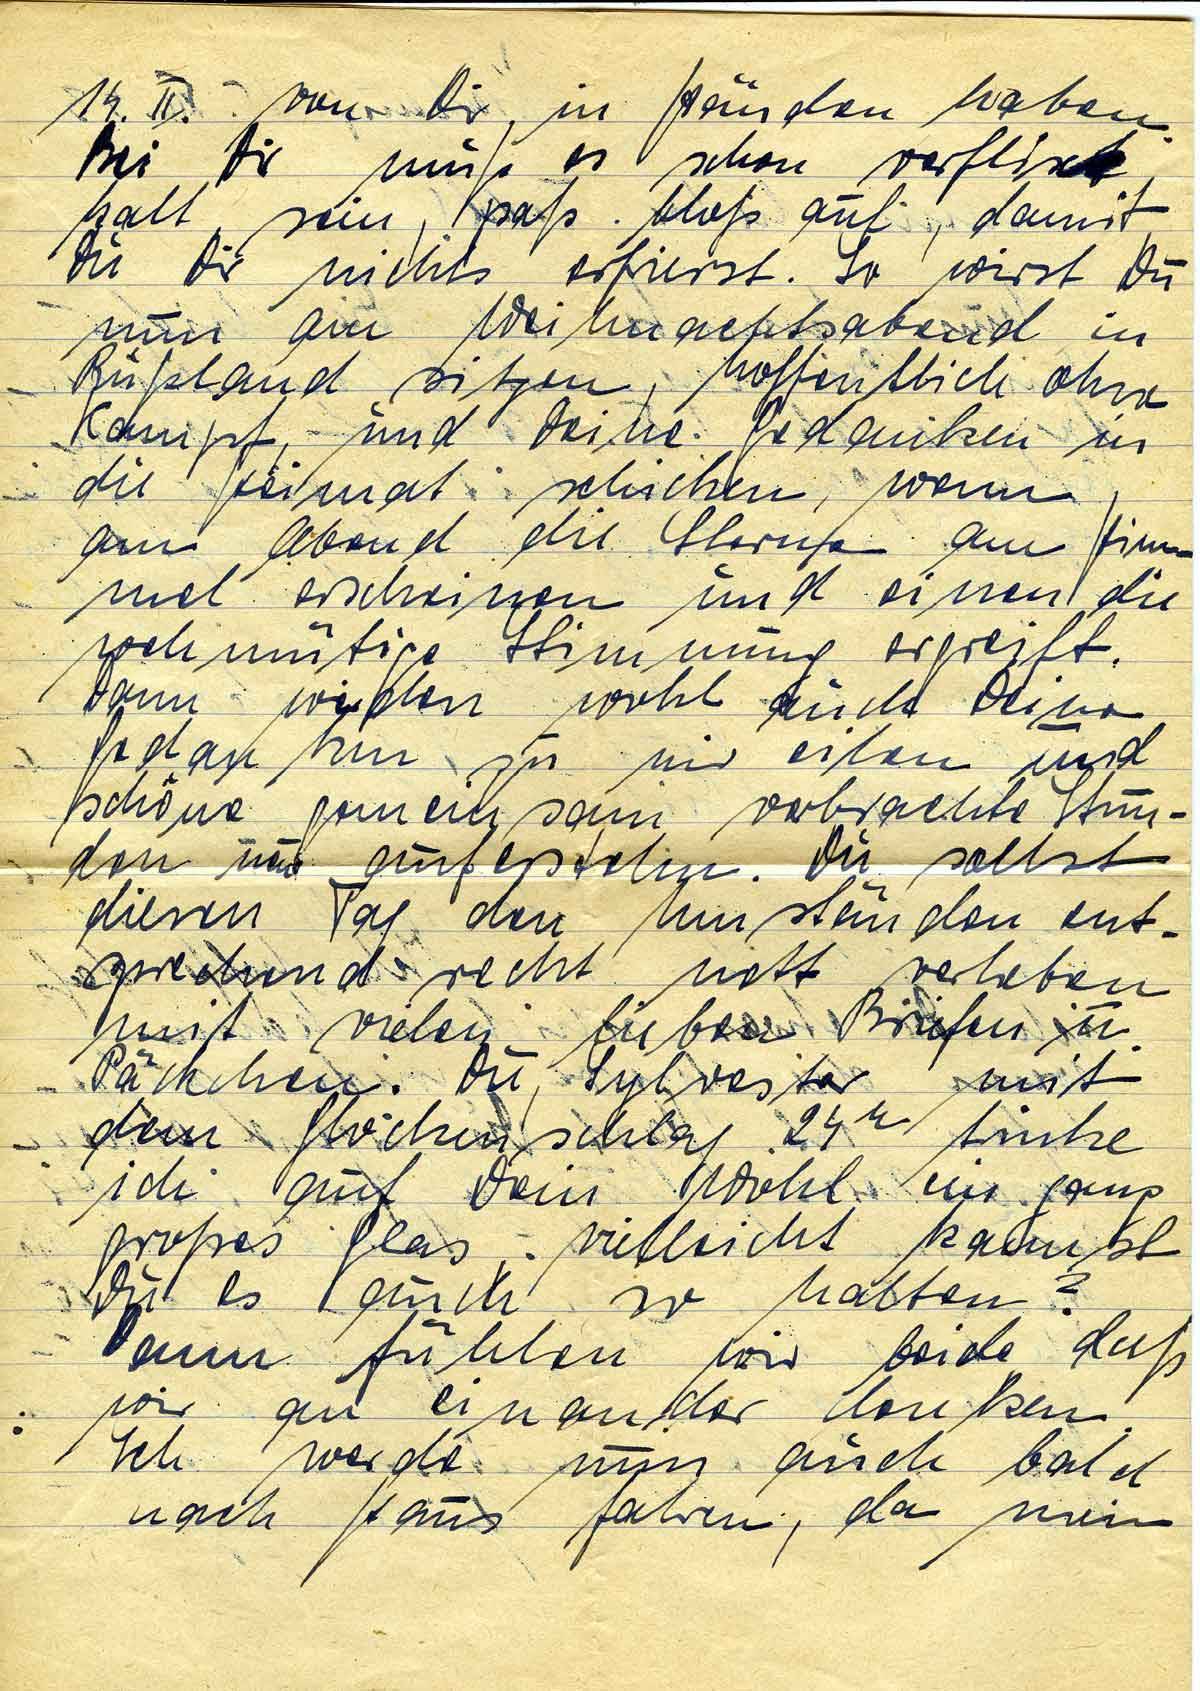 14. II. von Dir in Händen haben.
Bei Dir muß es schon verflixt
kalt sein, paß bloß auf, damit
Du Dir nichts erfrierst. So wirst Du
nun am Weihnachtsabend in
Rußland sitzen, hoffentlich ohne
Kampf, und Deine Gedanken in
die Heimat schicken, wenn
am Abend die Sterne am Him-
mel erscheinen und einen die
wehmütige Stimmung ergreift.
Dann werden wohl auch Deine
Gedanken zu mir eilen und
schöne gemeinsam verbrachte Stun-
den neu auferstehn. Du sollst
diesen Tag den Umständen ent-
sprechend recht nett verleben
mit vielen lieben Briefen u.
Päckchen. Du, Sylvester mit
dem Glockenschlag 24 trinke
ich auf Dein Wohl ein ganz
großes Glas, vielleicht kannst
Du es auch so halten?
Dann fühlen wir beide daß
wir an einander denken.
Ich werde nun auch bald
nach Haus fahren, da mein